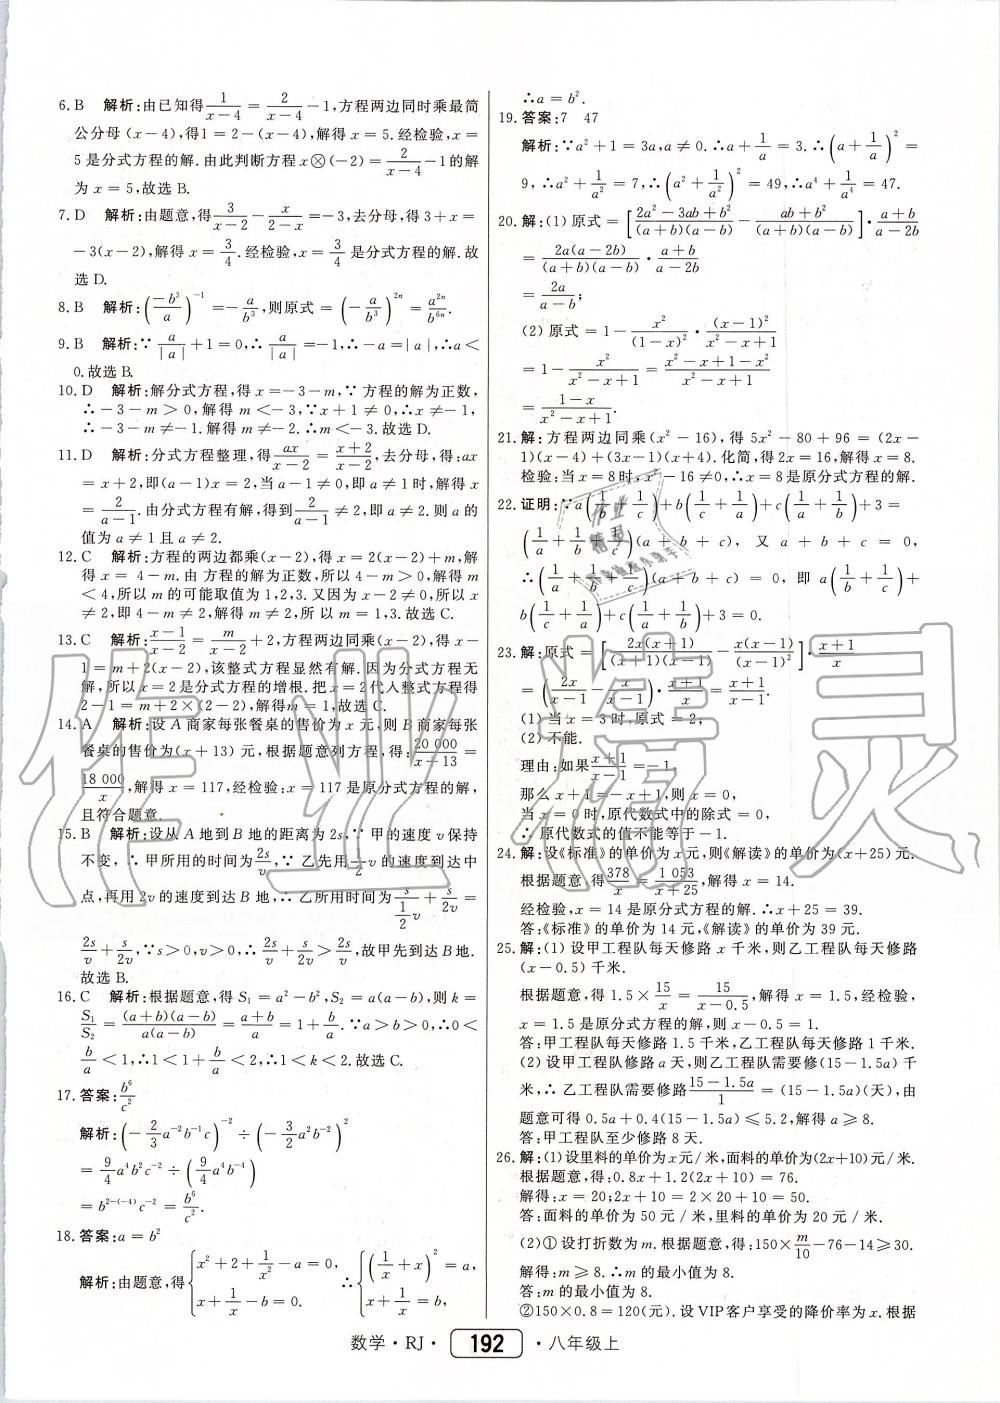 6. B 解析:由已知得 1/(x-4) = 2/(x-4) -1,方程两边同时乘最简
公分母 (x-4),得1=2-(x-4),解得 x=5.经检验,x=
5是分式方程的解.由此判断方程 x⊗(-2)= 2/(x-4) -1的解
为 x=5,故选B.
7. D 解析:由题意,得 3/(x-2) - x/(2-x) =-3,去分母,得:3+x=
-3(x-2),解得 x= 3/4 .经检验,x= 3/4 是分式方程的解.故
选D.
8. B 解析:((-b³)/a)⁻¹ =- a/b³ ,则原式=(- a/b³)²ⁿ = a²ⁿ/b⁶ⁿ .
9. B 解析:∵ a/|a| +1=0,∴ a/|a| =-1,∴-a=|a|,∴a<
0.故选B.
10. D 解析:解分式方程,得 x=-3-m,∵ 方程的解为正数,
∴-3-m>0,解得 m<-3,∵x+1≠0,∴x≠-1,
∴-3-m≠-1.解得 m≠-2.∴m<-3.故选D.
11. D 解析:分式方程整理,得 ax/(x-2) = (x+2)/(x-2) ,去分母,得:ax
=x+2,即(a-1)x=2,当 a-1≠0,即 a≠1时,解得 x
= 2/(a-1) .由分式方程有解,得到 2/(a-1) ≠2,即 a≠2.则 a的
值为 a≠1且 a≠2.
12. C 解析:方程的两边都乘(x-2),得 x=2(x-2)+m,解
得 x=4-m.由 方程的解为正数,所以4-m>0,解得 m
<4,所以 m的可能取值为1,2,3.又因为 x-2≠0,所以 x
≠2,即4-m≠2,解得 m≠2,所以 m=1,3.故选C.
13. C 解析: (x-1)/(x-2) = m/(x-2) +2,方程两边同乘(x-2),得 x-
1=m+2(x-2),该整式方程显然有解.因为分式方程无
解,所以 x=2是分式方程的增根.把 x=2代入整式方程得
2-1=m+2×(2-2),解得m=1,故选C.
14. A 解析:设A商家每张餐桌的售价为 x元,则B商家每张
餐桌的售价为(x+13)元,根据题意列方程,得: 20 000/(x+13) =
18 000/x ,解得 x=117,经检验:x=117是原分式方程的解,
且符合题意.
15. B 解析:设从A地到B地的距离为2s,∵ 甲的速度 v保持
不变,∴ 甲所用的时间为 2s/v ,∵ 乙先用 1/2 v的速度到达中
点,再用2v的速度到达B地,∴ 乙所用时间为 s/(1/2 v) + s/2v =
2s/v + s/2v ,∵s>0,v>0,∴ 2s/v + s/2v > 2s/v ,故甲先到达B地.
故选B.
16. C 解析:根据题意,得 S₁=a²-b²,S₂=a(a-b),则 k=
S₁/S₂ = (a+b)(a-b)/a(a-b) = (a+b)/a =1+ b/a .∵a>b>0,∴0<
b/a <1,∴1<1+ b/a <2,∴1<k<2.故选C.
17. 答案: b⁶/c²
解析:(- 2/3 a⁻²b⁻¹c)⁻² ÷(- 3/2 a²b⁻²)²
= 9/4 a⁴b²c⁻² ÷( 9/4 a⁴b⁻⁴)
=b²⁻⁽⁻⁴⁾c⁻² = b⁶/c² .
18. 答案:a=b²
解析:由题意,得{x²+2+ 1/x² -a=0, x+ 1/x -b=0. ∴{( 1/x +x)² =a, 1/x +x=b,
∴a=b².
19. 答案:7 47
解析:∵a²+1=3a,a≠0.∴a+ 1/a =3.∴(a+ 1/a)² =
9,∴a²+ 1/a² =7,∴(a²+ 1/a²)² =49,∴a⁴+ 1/a⁴ =47.
20. 解:(1)原式=[ (2a²-3ab+b²)/(a+b)(a-b) - (ab+b²)/(a+b)(a-b) ]· (a+b)/(a-2b)
= 2a(a-2b)/(a+b)(a-b) · (a+b)/(a-2b)
= 2a/(a-b) ;
(2)原式=1- x²/(1-x)² · (x-1)²/(x²-x+1)
=1- x²/(x²-x+1) = (x²-x+1-x²)/(x²-x+1)
= (1-x)/(x²-x+1) .
21. 解:方程两边同乘(x²-16),得 5x²-80+96=(2x-
1)(x-4)+(3x-1)(x+4).化简,得2x=16,解得 x=8.
检验:当 x=8时,x²-16≠0,∴x=8是原分式方程的解.
22. 证明:∵a( 1/b + 1/c )+b( 1/a + 1/c )+c( 1/a + 1/b )+3=
( 1/a + 1/b + 1/c )(a+b+c), 又 a+b+c=0,
∴( 1/a + 1/b + 1/c )(a+b+c)=0, 即 a( 1/b + 1/c )+
b( 1/a + 1/c )+c( 1/a + 1/b )+3=0.
23. 解:原式=[ 2x(x+1)/(x+1)(x-1) - x(x-1)/(x-1)² ]· (x+1)/x
=( 2x/(x-1) - x/(x-1) )· (x+1)/x = (x+1)/(x-1) .
(1)当 x=3时,原式=2,
(2)不能.
理由:如果 (x+1)/(x-1) =-1,
那么 x+1=-x+1,则 x=0,
当 x=0时,原代数式中的除式=0,
∴ 原代数式的值不能等于-1.
24. 解:设《标准》的单价为 x元,则《解读》的单价为(x+25)元.
根据题意 得 378/x = 1 053/(x+25) ,解得 x=14.
经检验,x=14是原分式方程的解.∴x+25=39.
答:《标准》的单价为14元,《解读》的单价为39元.
25. 解:(1)设甲工程队每天修路 x千米,则乙工程队每天修路
(x-0.5)千米.
根据题意,得1.5× 15/x = 15/(x-0.5) ,解得 x=1.5,经检验,
x=1.5是原分式方程的解,则 x-0.5=1.
答:甲工程队每天修路1.5千米,乙工程队每天修路1千米.
(2)设甲工程队修路 a天,则乙工程队需要修(15-1.5a)千
米,∴ 乙工程队需要修路 (15-1.5a)/1 =(15-1.5a)(天),由
题意可得0.5a+0.4(15-1.5a)≤5.2,解得 a≥8.
答:甲工程队至少修路8天.
26. 解:(1)设里料的单价为 x元/米,面料的单价为(2x+10)元/米.
根据题意,得:0.8x+1.2(2x+10)=76.
解得:x=20;2x+10=2×20+10=50.
答:面料的单价为50元/米,里料的单价为20元/米.
(2)①设打折数为 m.根据题意,得:150× m/10 -76-14≥30.
解得:m≥8.∴m的最小值为8.
答:m的最小值为8.
②150×0.8=120(元).设VIP客户享受的降价率为 x.根据
数学·RJ· 192 ·八年级上
作业精灵